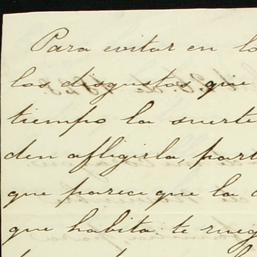 Para evitar en lo
los disgustos que
tiempo la suerte
den afligirla, part
que parece que la
que habita te rueg